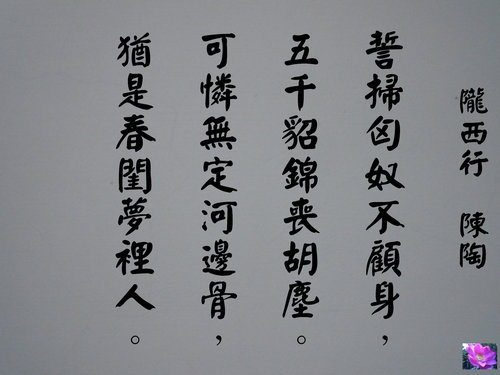 隴西行　陳陶
誓掃匈奴不顧身，
五千貂錦喪胡塵。
可憐無定河邊骨，
猶是春閨夢裡人。